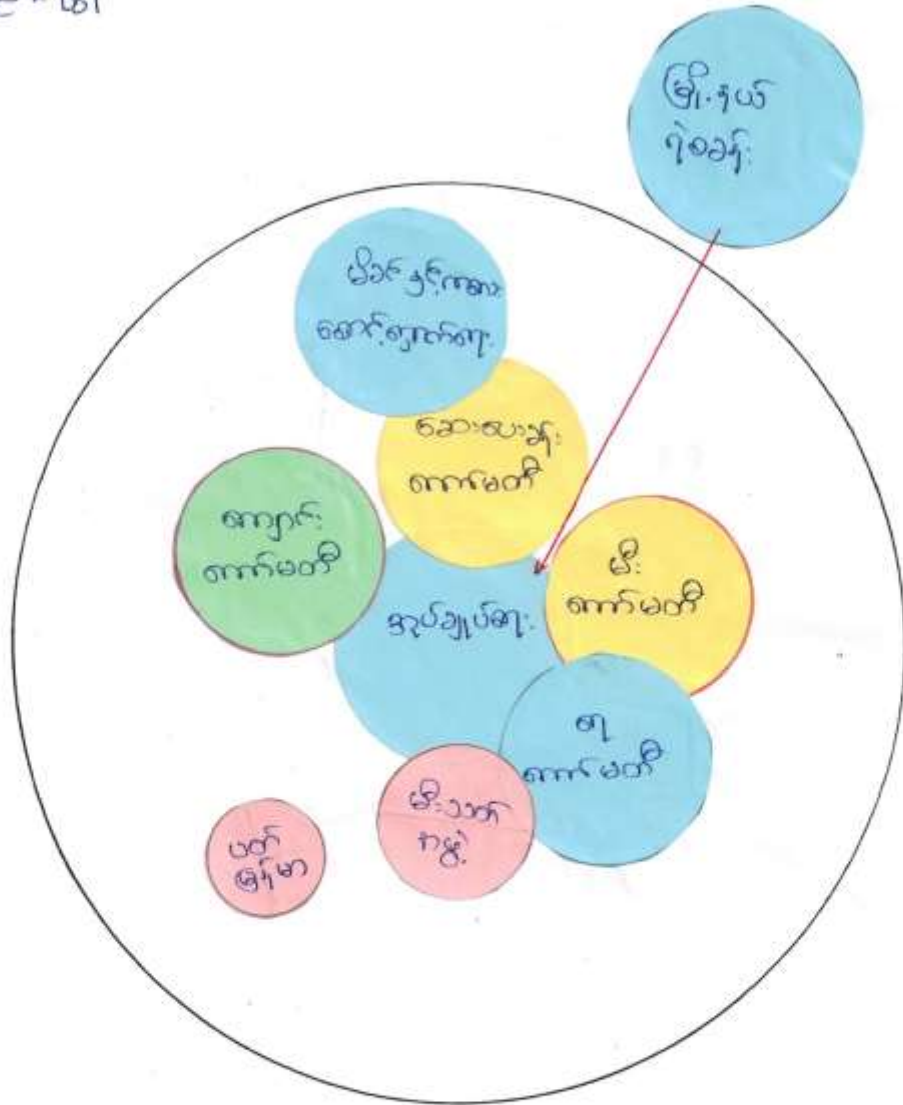 မြို့နယ်
ရဲစခန်း
မိခင်နှင့်ကလေး
စောင့်ရှောက်ရေး
ဆေးပေးခန်း
ကော်မတီ
ကျောင်း
ကော်မတီ
မီး
ကော်မတီ
အုပ်ချုပ်ရေး
ရေ
ကော်မတီ
မီးသတ်
အဖွဲ့
ပတ်
မြန်မာ